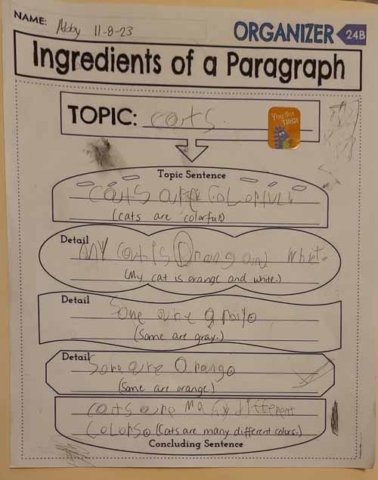 NAME: Abby 11-9-23
ORGANIZER 24B
Ingredients of a Paragraph
TOPIC: cats.
Topic Sentence
cats are COLORFUL
(cats are colorful)
Detail
MY cat is Orang an Whit
(My cat is orange and white.)
Detail
Some are
(Some are gray.)
Detail
Some are Orango
(Some are orange)
cats are different
Colorso (Cats are many different colors.)
Concluding Sentence